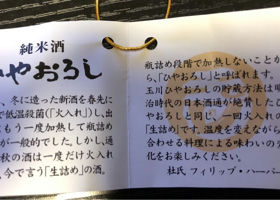 純米酒
ひやおろし
、冬に造った新酒を春先に
で低温殺菌(「火入れ」)し、出
にもう一度加熱して瓶詰め
が一般的でした。しかし通
秋の酒は一度だけ火入れ
、今で言う「生詰め」の酒。
瓶詰め段階で加熱しないことか
ら、「ひやおろし」と呼ばれます。
玉川ひやおろしの貯蔵方法は明
治時代の日本酒通が絶賛した
やおろしと同じ、一回火入れの
「生詰め」です。温度を変えなが
合わせる料理による味わいの
化をお楽しみください。
杜氏 フィリップ・ハーパー